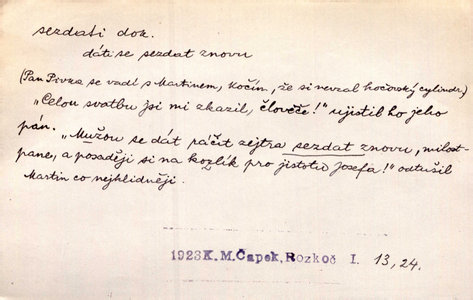 sezdati dok.
dáti se sezdat znovu
(Pan Pivka se vadí s Martinem, kočím, že si nevzal kočovský cylindr,)
„Celou svatbu jsi mi zkazil, člověče!" ujistil ho jeho
pán. „Mužou se dát ráčit zejtra sezdat znovu, milost-
pane, a posaději si na kozlík pro jistotu Josefa!" odtušil
Martin co nejklidněji.
1923 K. M. Čapek, Rozkoč I. 13, 24.